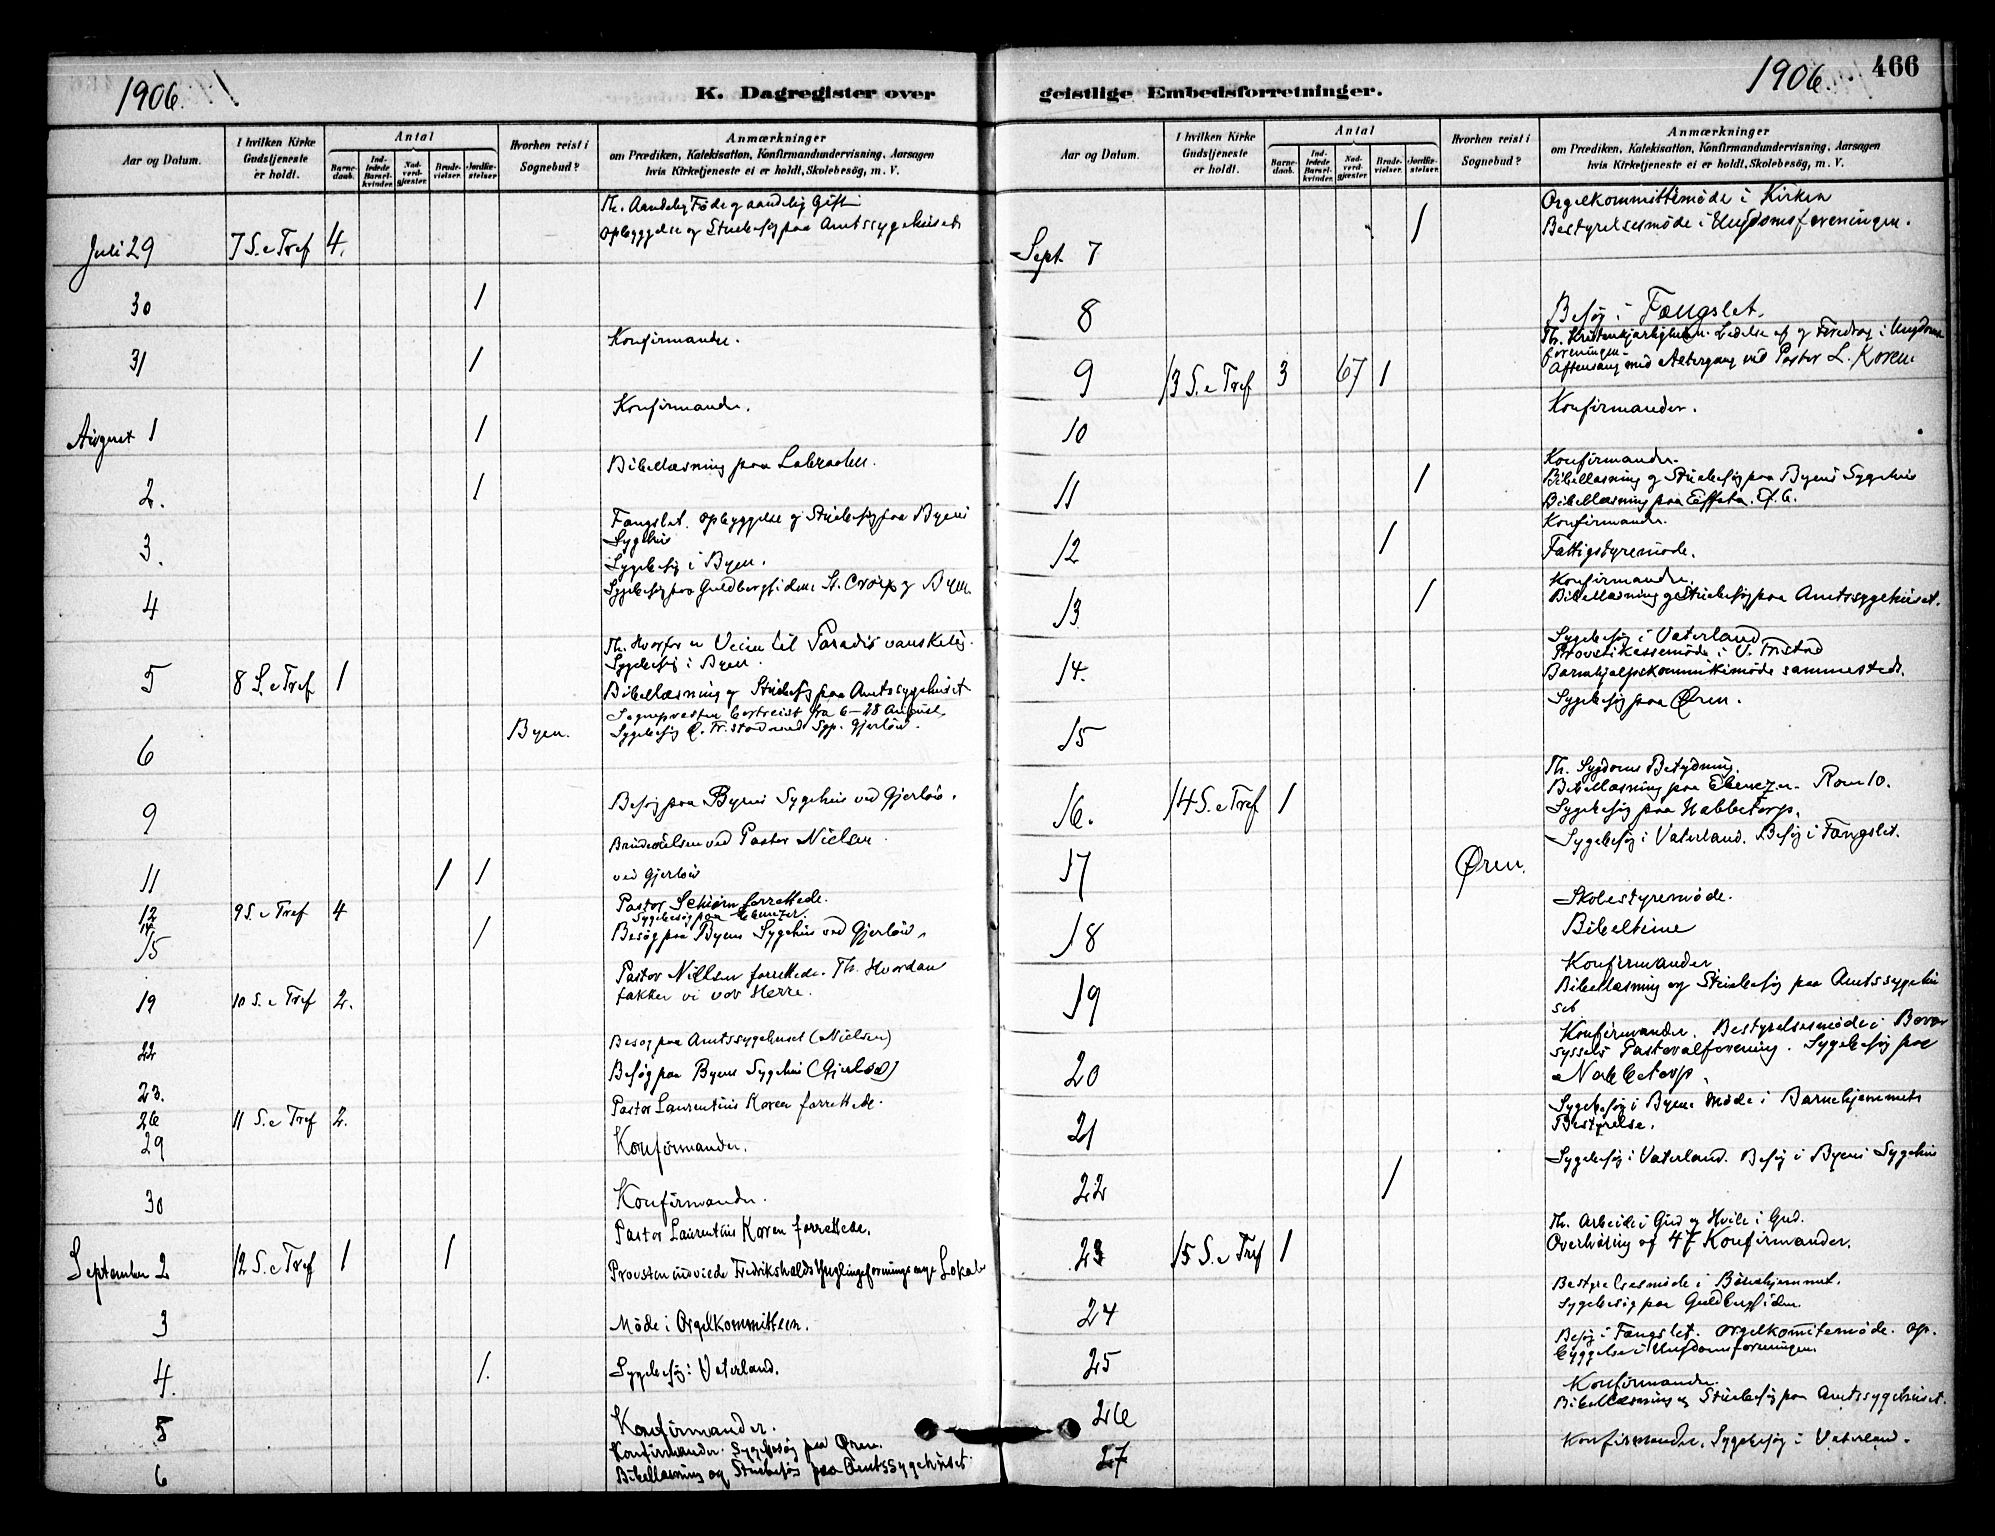 1906.
K. Dagregister over
Aar og Datum.
I hvilken Kirke Gudstjeneste er holdt.
Antal
Barnedaab.
Indledede Barselkvinder.
Nadverdgjæster.
Brudevielser.
Jordfæstelser.
Hvorhen reist i Sognebud?
Anmærkninger
om Prædiken, Katekisation, Konfirmandundervisning, Aarsagen
hvis Kirketjeneste ei er holdt, Skolebesøg, m. V.
Th. Aandelig Føde og aandelig Gift
Juli 29 7 S. e Tref 4. Opbyggelse og Stuebesøg paa Amtssygehuset
30 1
Konfirmander.
31 1
Konfirmander.
August 1 1
Bibellæsning paa
2. 1
Fængslet. Opbyggelse og Stuebesøg paa Byens
Sygehus
3.
Sygebesøg i Byen.
Sygebesøg paa Guldbergsiden St. Croix og Byen.
4
Th. Hvorfor er Veien til Paradis vanskelig.
Sygebesøg i Byen.
5 8 S. e Tref 1
Bibellæsning og Stuebesøg paa Amtssygehuset
Sognepresten bortreist fra 6-28 August
6 Byen. Sygebesøg ved Sgp. Gjerløw.
9 Besøg paa Byens Sygehus ved Gjerløw.
Brudevielsen ved Pastor Nielsen
11 1 1 ved Gjerløw
12 9 S. e Tref 4 Pastor Schiørn forrettede.
14 Sygebesøg paa Ebenezer.
15 1 Besøg paa Byens Sygehus ved Gjerløw.
Pastor Nielsen forrettede. Th. Hvordan
19 10 S. e Tref 2. takker vi vor Herre.
22 Besøg paa Amtssygehuset (Nielsen)
23. Besøg paa Byens Sygehus (Gjerløw)
26 11 S. e Tref 2. Pastor Laurentius Koren forrettede.
29 Konfirmander.
30 Konfirmander.
Pastor Laurentius Koren forrettede.
September 2 12 S. e Tref 1 1 Provsten indviede Fredrikshalds Ynglingeforenings nye Lokale
3 Møde i Orgelkommitteen.
4. 1. Sygebesøg i Vaterland.
5 Konfirmander.
Konfirmander. Sygebesøg paa Øren.
6 Bibellæsning og Stuebesøg paa Amtssygehuset.
1906.
466
geistlige Embedsforretninger.
Aar og Datum.
I hvilken Kirke Gudstjeneste er holdt.
Antal
Barnedaab.
Indledede Barselkvinder.
Nadverdgjæster.
Brudevielser.
Jordfæstelser.
Hvorhen reist i Sognebud?
Anmærkninger
om Prædiken, Katekisation, Konfirmandundervisning, Aarsagen
hvis Kirketjeneste ei er holdt, Skolebesøg, m. V.
Orgelkommittemøde i Kirken
Sept. 7 1 Bestyrelsesmøde i Ungdomsforeningen.
8 Besøg i Fængslet.
Th. Kristenkjærligheden. Ledelse af og Foredrag i Ungdoms
foreningen.
9 13 S. e Tref 3 67 1 Aftensang med Altergang ved Pastor L. Koren
10 Konfirmander.
Konfirmander.
11 1 Bibellæsning og Stuebesøg paa Byens Sygehus
Bibellæsning paa Effata.
Konfirmander.
12 1 Fattigstyremøde.
Konfirmander.
13 1 Bibellæsning og Stuebesøg paa Amtssygehuset.
Sygebesøg i Vaterland
Provstikassemøde i
14. Barnehjælpskommitemøde sammesteds.
15 Sygebesøg paa Øren.
Th. Sygdoms Betydning.
Bibellæsning paa Ebenezer. Rom 10.
16. 14 S. e Tref 1 Sygebesøg paa Nabbetorp.
Sygebesøg i Vaterland. Besøg i Fængslet.
17 Øren.
Skolestyremøde.
18 Bibeltime
Konfirmander
19 Bibellæsning og Stuebesøg paa Amtssygehu
set
Konfirmander. Bestyrelsesmøde i Borgar
syssels Pastoralforening. Sygebesøg paa
20 Nabbetorp.
Sygebesøg i Byen. Møde i Barnehjemmets
21 Bestyrelse.
Sygebesøg i Vaterland. Besøg i Byens Sygehus
22 1
Th. Arbeide i Gud og Hvile i Gud.
23 15 S. e Tref 1 Overhøring af 47 Konfirmander.
Bestyrelsesmøde i
24 Sygebesøg paa Guldbergsiden.
Besøg i Fængslet. Orgelkomitemøde. Op-
25 byggelse i Ungdomsforeningen.
Konfirmander.
26 Bibellæsning og Stuebesøg paa Amtssygehuset.
27 Konfirmander. Sygebesøg i Vaterland.